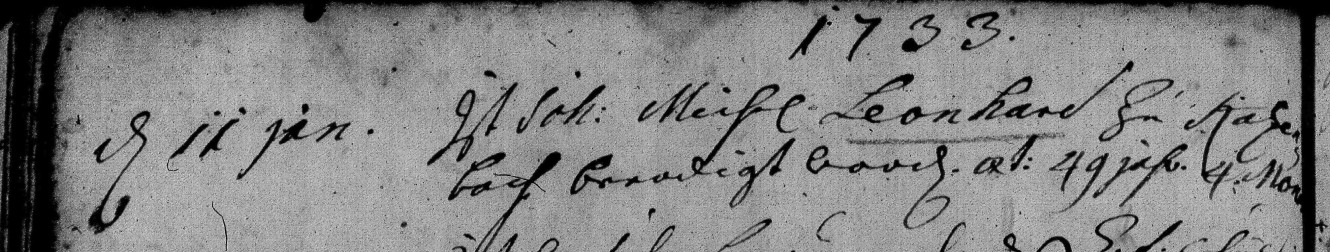 1733.
d 11 jan. Ist Joh: Michel Leonhard zu Katzen
bach beerdigt word. æt: 49 jahr. 4. Mon